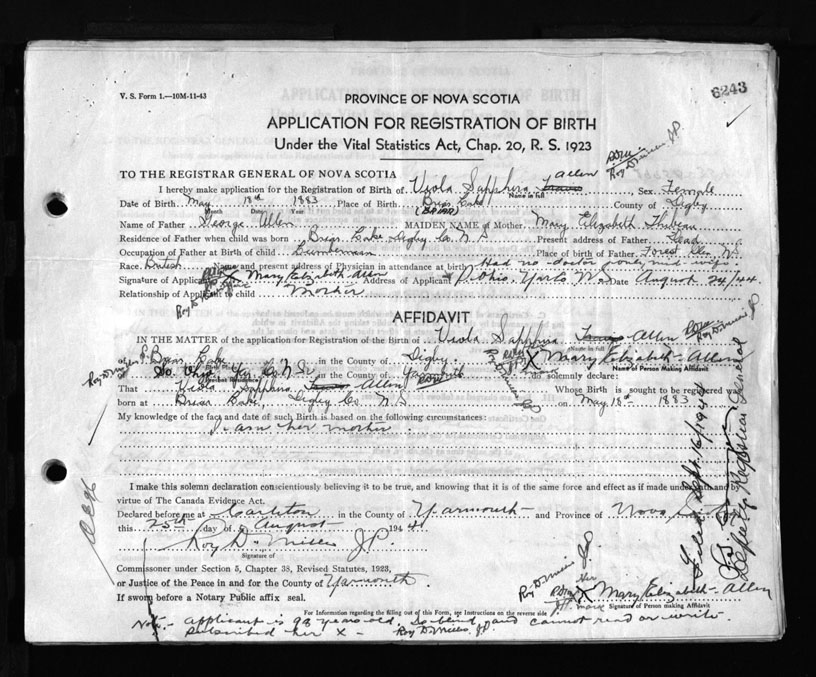 V. S. Form 1.—10M-11-43
6243
PROVINCE OF NOVA SCOTIA
APPLICATION FOR REGISTRATION OF BIRTH
Under the Vital Statistics Act, Chap. 20, R. S. 1923
Roy D Miller JP
TO THE REGISTRAR GENERAL OF NOVA SCOTIA
allen
I hereby make application for the Registration of Birth of Viola Sapphira Sex Female
Name in full
Date of Birth May 18th 1883 Place of Birth Briar Lake County of Digby
Month Date Year (BRIAR)
Name of Father George Allen MAIDEN NAME of Mother Mary Elizabeth
Residence of Father when child was born Briar Lake Digby Co. N.S. Present address of Father Dead
Occupation of Father at Birth of child Lumberman Place of birth of Father Forest N.S.
Race British Name and present address of Physician in attendance at birth Had no doctor only mid-wife
Signature of Applicant X Mary Elizabeth Allen Address of Applicant Ohio, Yarm. N.S. Date August 24/44
Relationship of Applicant to child Mother
AFFIDAVIT
IN THE MATTER of the application for Registration of the Birth of Viola Sapphira Allen
Name in full
of Briar Lake in the County of Digby X Mary Elizabeth Allen
Name of Person Making Affidavit
of So. Ohio Yar. Co. N.S. in the County of Yarmouth do solemnly declare:
Present Residence
That Viola Sapphira Allen Whose Birth is sought to be registered was
born at Briar Lake Digby Co. N.S. on May 18th 1883
My knowledge of the fact and date of such Birth is based on the following circumstances:
I am her mother.
I make this solemn declaration conscientiously believing it to be true, and knowing that it is of the same force and effect as if made under oath and by
virtue of The Canada Evidence Act.
Declared before me at Carleton in the County of Yarmouth and Province of Nova Scotia
this 25th day of August 1944
Roy D. Miller JP.
Signature of
Commissioner under Section 5, Chapter 38, Revised Statutes, 1923,
or Justice of the Peace in and for the County of Yarmouth.
If sworn before a Notary Public affix seal.
Roy D Miller JP
her
X Mary Elizabeth Allen
mark Signature of Person making Affidavit
For Information regarding the filling out of this Form, see Instructions on the reverse side
Note - Applicant is 98 years old. Is blind and cannot read or write.
Subscribed her X - Roy D Miller, JP.
Filed Sept. 16/1944
Deputy Registrar General